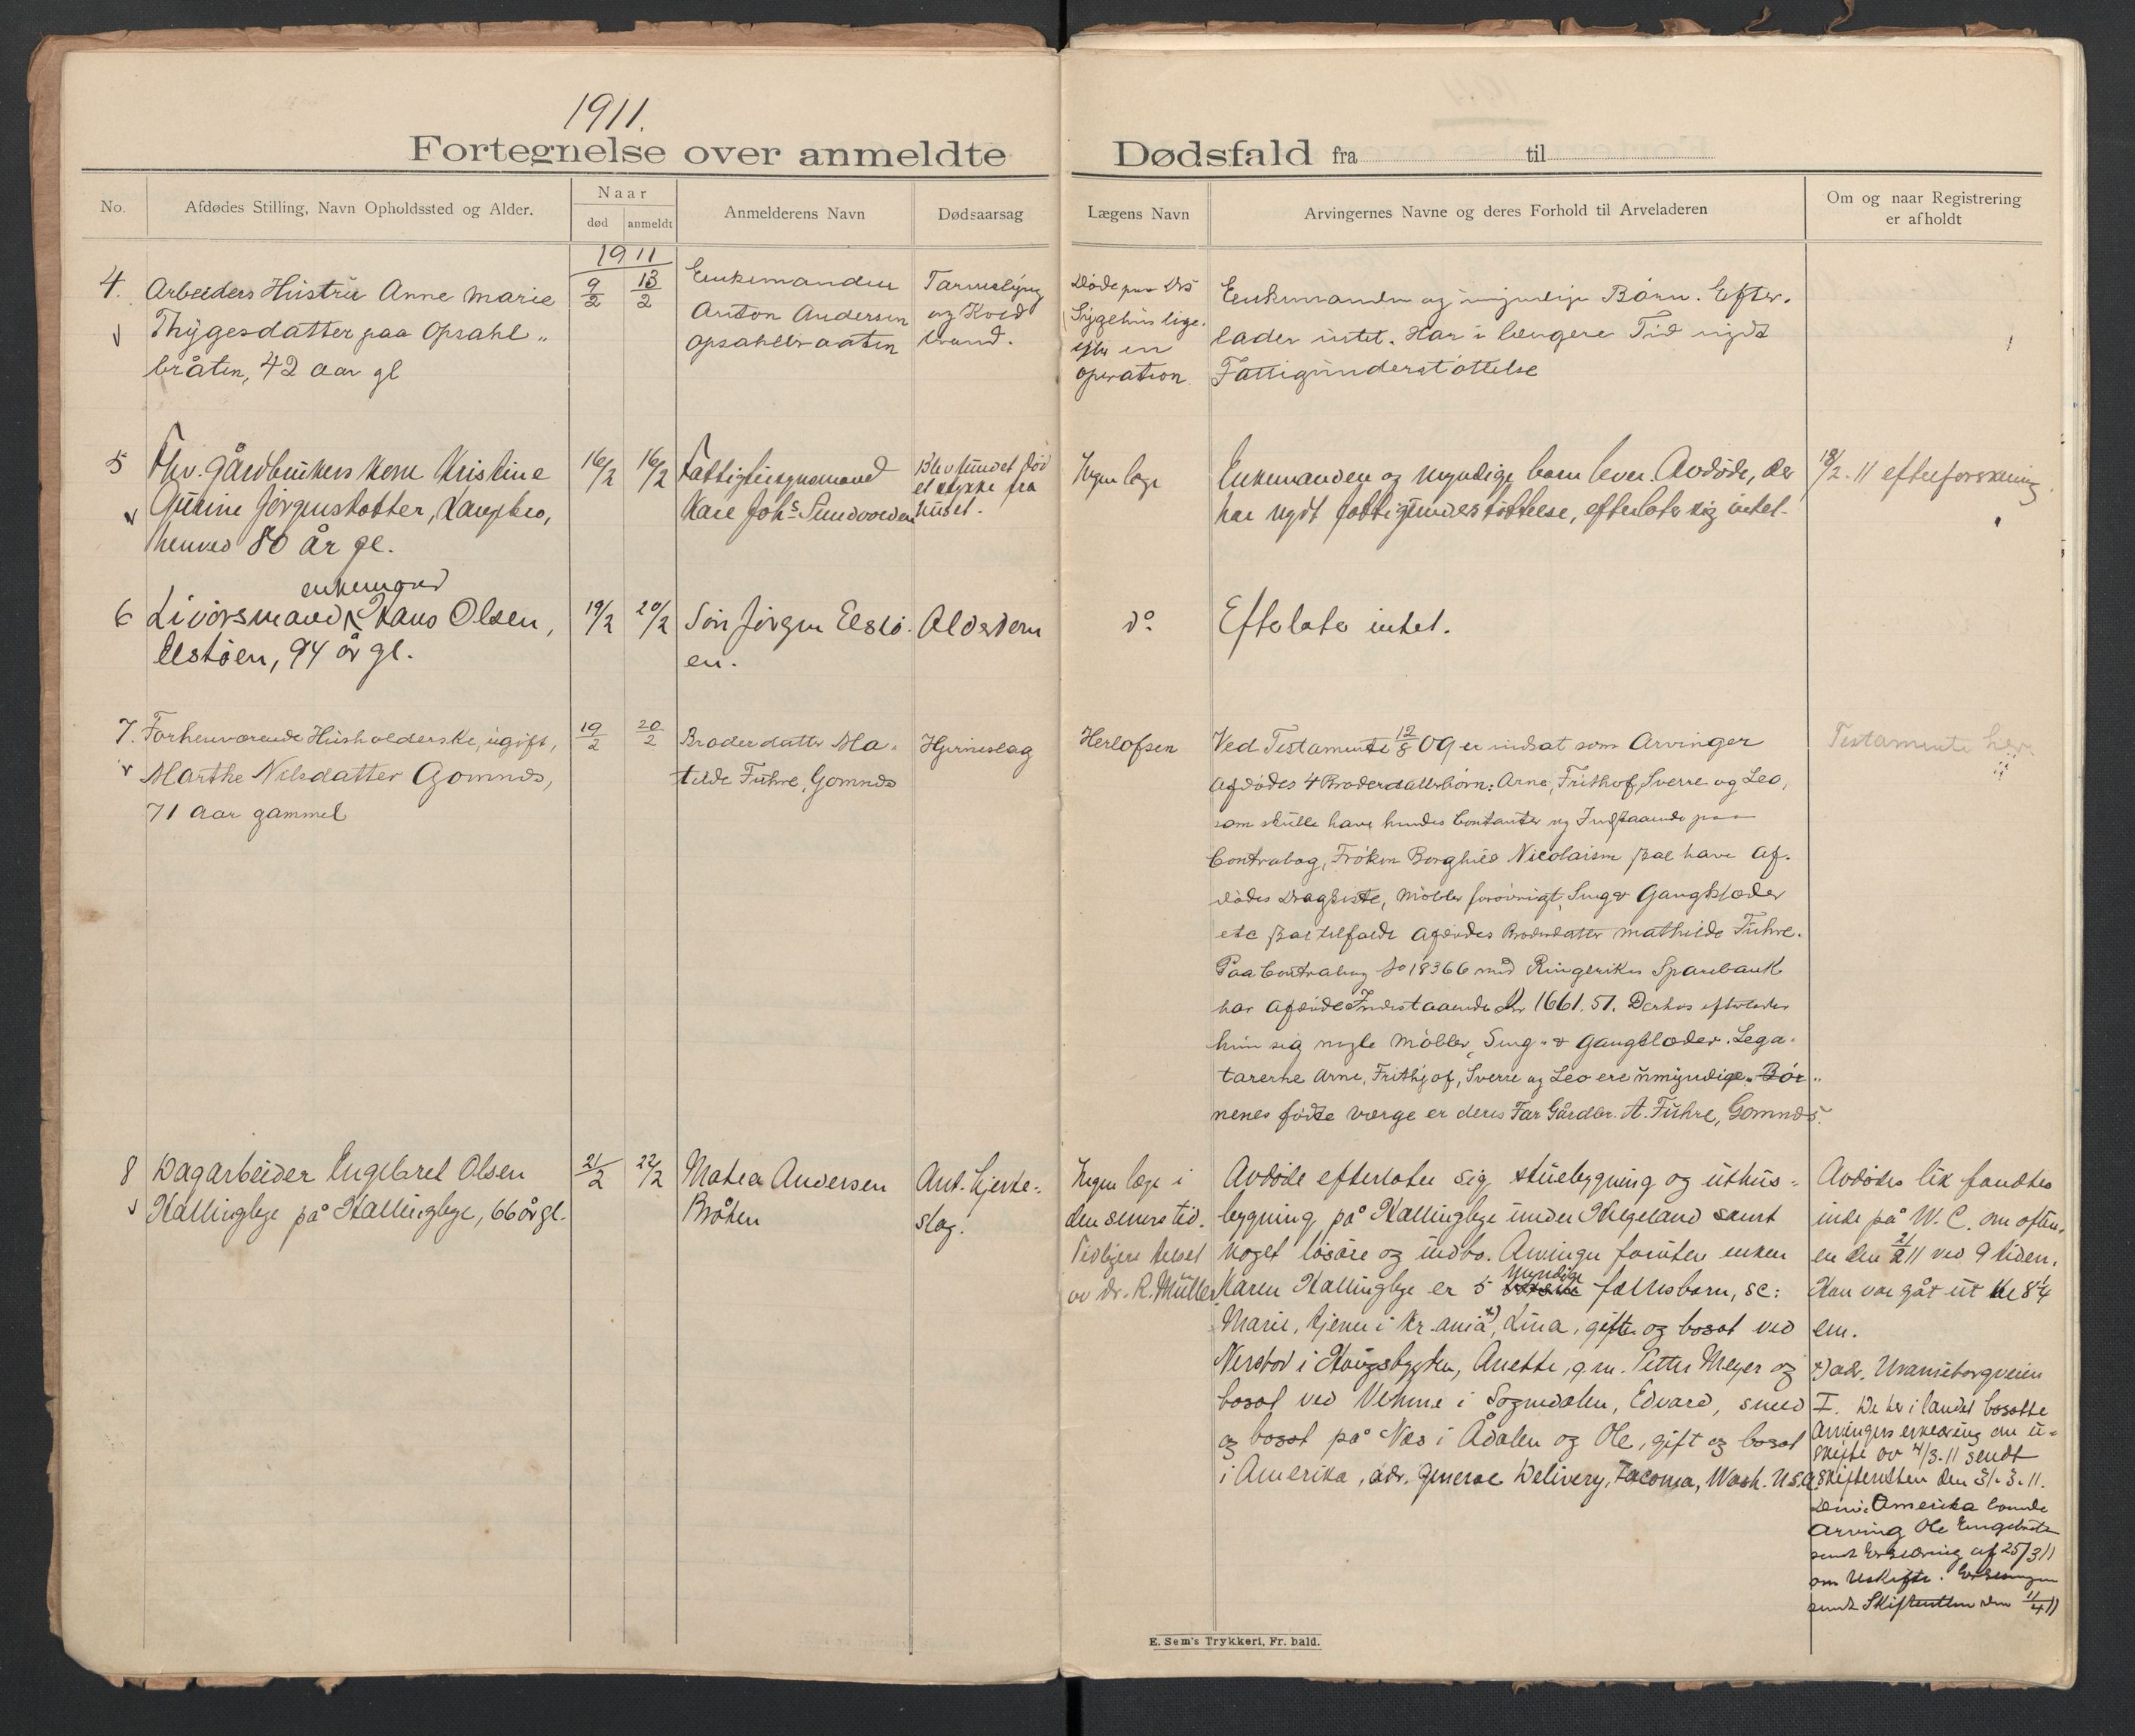 1911.
Fortegnelse over anmeldte Dødsfald fra til
No.
Afdødes Stilling, Navn Opholdssted og Alder.
Naar
død
anmeldt
Anmelderens Navn
Dødsaarsag
Lægens Navn
Arvingernes Navne og deres Forhold til Arveladeren
Om og naar Registrering
er afholdt
1911
4.
Arbeiders Hustru Anne Marie
Thygesdatter paa Opsahl„
bråten, 42 aar gl
9/2
13/2
Enkemanden
Anton Andersen
Opsahlbraaten
Tarmslyng
og Kold
brand.
Døde paa Drs
Sygehus lige
efter en
operation.
Enkemanden og umyndige Børn. Efter-
lader intet. Har i længere Tid nydt
Fattigunderstøttelse
5
Fhv. Gårdbrukers kone Kristine
Gurine Jørgensdatter,
henved 80 år gl.
16/2
16/2
Fattigtilsynsmand
Kare Johs. Sundvolden
Blev fundet død
et stykke fra
huset.
Ingen læge
Enkemanden og myndige barn lever. Avdøde, der
har nydt fattigunderstøttelse, efterlater sig intet.
18/2. 11 efterforskning
6
enkemand
Livørsmand Hans Olsen,
Elstøen, 94 år gl.
19/2
20/2
Søn Jørgen Elstø-
en.
Alderdom
do
Efterlater intet.
7.
Forhenværende Husholderske, ugift,
Marthe Nilsdatter Gomnæs,
71 aar gammel
19/2
20/2
Broderdatter Ma-
tilde Fuhre, Gomnæs
Hjerneslag
Herlofsen
Ved Testamente 12/8 09 er indsat som Arvinger
Afdødes 4 Broderdatterbørn: Arne, Frithof, Sverre og Leo,
som skulle have hendes Contanter og Indstaaende paa
Contrabog, Frøken Borghild Nicolaisen skal have Af-
dødes Dragkiste, Møbler forøvrigt, Seng & Gangklæder
etc skal tilfalde Afdødes Broderdatter Mathilde Fuhre.
Paa Contrabog No 18366 med Ringerikes Sparebank
har Afdøde Indestaaende Kr 1661.51. Derhos efterlader
hun sig nogle Møbler, Seng- & Gangklæder. Lega-
tarerne Arne, Frithjof, Sverre og Leo ere umyndige. Bør„
nenes fødte værge er deres Far Gårdbr. A. Fuhre, Gomnæs.
Testamente her
8
Dagarbeider Engebret Olsen
Hallingbye på Hallingbye, 66 år gl.
21/2
22/2
Matea Andersen
Bråten
Ant. hjerte-
slag.
Ingen læge i
den senere tid.
Tidligere tilset
av dr. R. Müller
Avdøde efterlater sig stuebygning og uthus-
bygning på Hallingbye under Helgeland samt
noget løsøre og indbo. Arvinger foruten enken
Karen Hallingbye er 5 myndige fællesbarn, sc:
Marie, tjener i Kr.ania x), Lina, gift og bosat ved
Nerstad i Haugsbygden, Anette, g.m. Petter Meyer og
bosat ved Vehme i Sognedalen, Edvard, smed
og bosat på Næs i Ådalen og Ole, gift og bosat
i Amerika, adr. General Delivery, Tacoma, Wash. U.S.A.
Avdødes lik fandtes
inde på W.C. om aften-
en den 21/2 11 ved 9 tiden.
Han var gåt ut kl 8 1/4
em.
x) adr. Uranieborgveien
I. De her i landet bosatte
arvingers erklæring om u-
skifte av 4/3.11 sendt
skifteretten den 31.3.11.
Den i Amerika boende
Arving Ole Engebrets
sendt Erklæring af 25/3 11
om Uskifte. Erklæringen
sendt Skifteretten den 11/4 11
E. Sem's Trykkeri, Fr. hald.